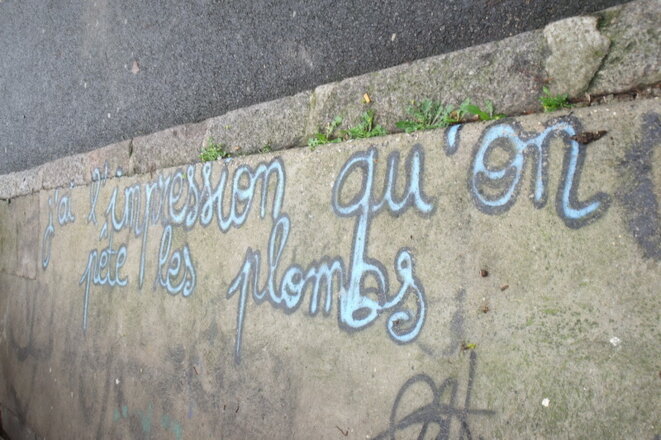 j'ai l'impression qu'on
pète les plombs